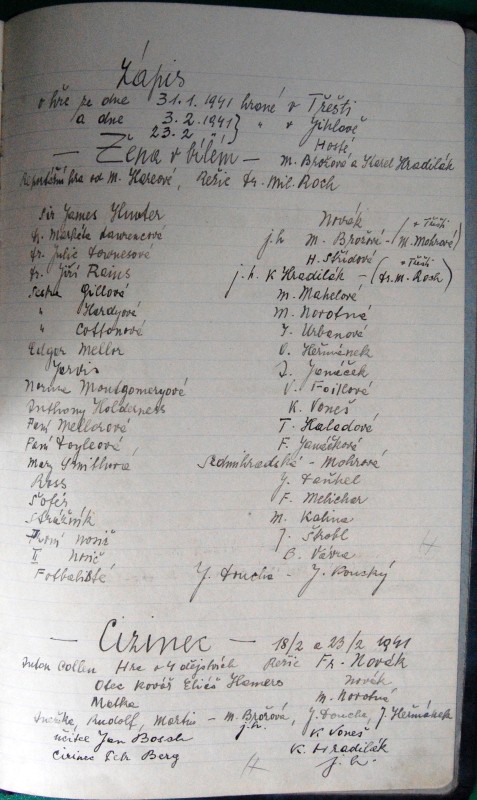 Zápis
o hře ze dne 31.1. 1941 hrané v Třešti
a dne 3.2. 1941 } " v Jihlavě
23.2
Hosté
— Žena v bílém — M. Brožová a Karel Hradilák
hra od M. Hareové, Režie Dr. Mil. Roch
Sir James Hunter Novák
Dr. Markéta Lawrencová j.h. M. Brožová - (v Třešti M. Mohrová)
Dr. Julie H. Střídová
Dr. Jiří Rains j.h. K Hradilák - (v Třešti Dr. M. Roch)
Sestra Gillová M. Mahelová
" Hardyová M. Novotná
" Cottonová J. Urbanová
Edgar Mellor O. Heřmánek
Jarvis J. Janáček
Norma Montgomeryová V. Foitlová
Anthony Holderness K. Voneš
Paní Mellorová T. Kaladová
Paní Doyleová F. Janáčková
Mary Smithová Sedmihradská - Mohrová
Ross J. Daňhel
Šofér F. Melichar
Strážník M. Kalina
První nosič J. Škrobl
II nosič B. Vávra
Fotbalisté J. Doucha - J. Kouský
— Cizinec — 18/2 a 23/2 1941
Anton Collen Hra v 4 dějstvích Režie Fr. Novák
Otec Kovář Eliáš Hamers Novák
Matka M. Novotná
Anežka, Rudolf, Martin - M. Brožová, j.h. J. Doucha, J. Heřmánek
učitel Jan Bosch K Voneš
Cizinec Petr Berg K. Hradilák
j. h.